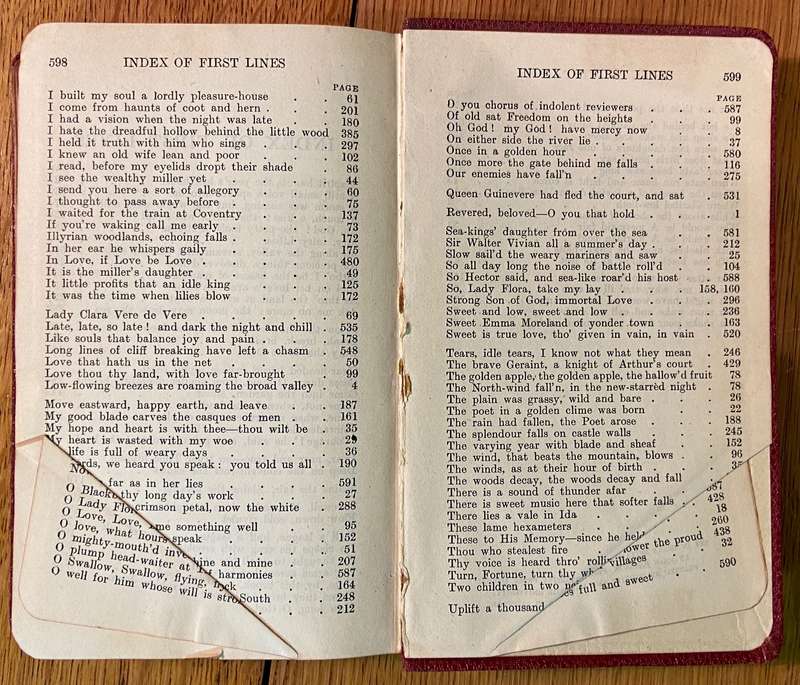 598 INDEX OF FIRST LINES
PAGE
I built my soul a lordly pleasure-house . . 61
I come from haunts of coot and hern . . . 201
I had a vision when the night was late . . 180
I hate the dreadful hollow behind the little wood 385
I held it truth with him who sings . . . 297
I knew an old wife lean and poor . . . 102
I read, before my eyelids dropt their shade . 86
I see the wealthy miller yet . . . . 44
I send you here a sort of allegory . . . 60
I thought to pass away before . . . . 75
I waited for the train at Coventry . . . 137
If you're waking call me early . . . . 73
Illyrian woodlands, echoing falls . . . . 172
In her ear he whispers gaily . . . . 175
In Love, if Love be Love . . . . . 480
It is the miller's daughter . . . . . 49
It little profits that an idle king . . . 125
It was the time when lilies blow . . . 172
Lady Clara Vere de Vere . . . . . 69
Late, late, so late ! and dark the night and chill . 535
Like souls that balance joy and pain . . . 178
Long lines of cliff breaking have left a chasm . 548
Love that hath us in the net . . . . 50
Love thou thy land, with love far-brought . 99
Low-flowing breezes are roaming the broad valley . 4
Move eastward, happy earth, and leave . . 187
My good blade carves the casques of men . . 161
My hope and heart is with thee—thou wilt be . 35
My heart is wasted with my woe . . . 29
life is full of weary days . . . . 36
ords, we heard you speak : you told us all . 190
No far as in her lies . . . . 591
O Black thy long day's work . . . . 27
O Lady Flo crimson petal, now the white . 288
O Love, Love, me something well . . . 95
O love, what hours speak . . . . 152
O mighty-mouth'd inve . . . 51
O plump head-waiter at T ine and mine . . 207
O Swallow, Swallow, flying, harmonies . . 587
O well for him whose will is stro . . . 164
South . . 248
. . . 212
INDEX OF FIRST LINES 599
PAGE
O you chorus of indolent reviewers . . . 587
Of old sat Freedom on the heights . . . 99
Oh God ! my God ! have mercy now . . . 8
On either side the river lie . . . . . 37
Once in a golden hour . . . . . 580
Once more the gate behind me falls . . . 116
Our enemies have fall'n . . . . . 275
Queen Guinevere had fled the court, and sat . 531
Revered, beloved—O you that hold . . . 1
Sea-kings' daughter from over the sea . . 581
Sir Walter Vivian all a summer's day . . . 212
Slow sail'd the weary mariners and saw . . 25
So all day long the noise of battle roll'd . . 104
So Hector said, and sea-like roar'd his host . 588
So, Lady Flora, take my lay . . . 158, 160
Strong Son of God, immortal Love . . . 296
Sweet and low, sweet and low . . . . 236
Sweet Emma Moreland of yonder town . . 163
Sweet is true love, tho' given in vain, in vain . 520
Tears, idle tears, I know not what they mean . 246
The brave Geraint, a knight of Arthur's court . 429
The golden apple, the golden apple, the hallow'd fruit 78
The North-wind fall'n, in the new-starrèd night . 78
The plain was grassy, wild and bare . . . 26
The poet in a golden clime was born . . . 22
The rain had fallen, the Poet arose . . . 188
The splendour falls on castle walls . . . 245
The varying year with blade and sheaf . . 152
The wind, that beats the mountain, blows . . 96
The winds, as at their hour of birth . . . 35
The woods decay, the woods decay and fall
There is a sound of thunder afar . . . 587
There is sweet music here that softer falls . . 428
There lies a vale in Ida . . . . . 18
These lame hexameters . . . . 260
These to His Memory—since he held lower the proud 438
Thou who stealest fire . . . 32
Thy voice is heard thro' rolli villages
Turn, Fortune, turn thy wh . . 590
Two children in two ne full and sweet
Uplift a thousand